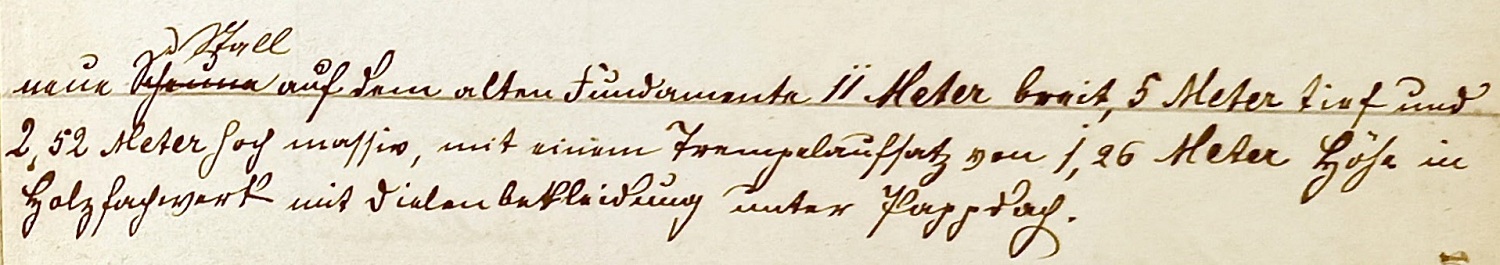 u Stall
neue Scheune auf dem alten Fundamente 11 Meter breit, 5 Meter tief und
2,52 Meter hoch massiv, mit einem Trempelaufsatz von 1,26 Meter Höhe in
Holzfachwerk mit Dielenbekleidung unter Pappdach.